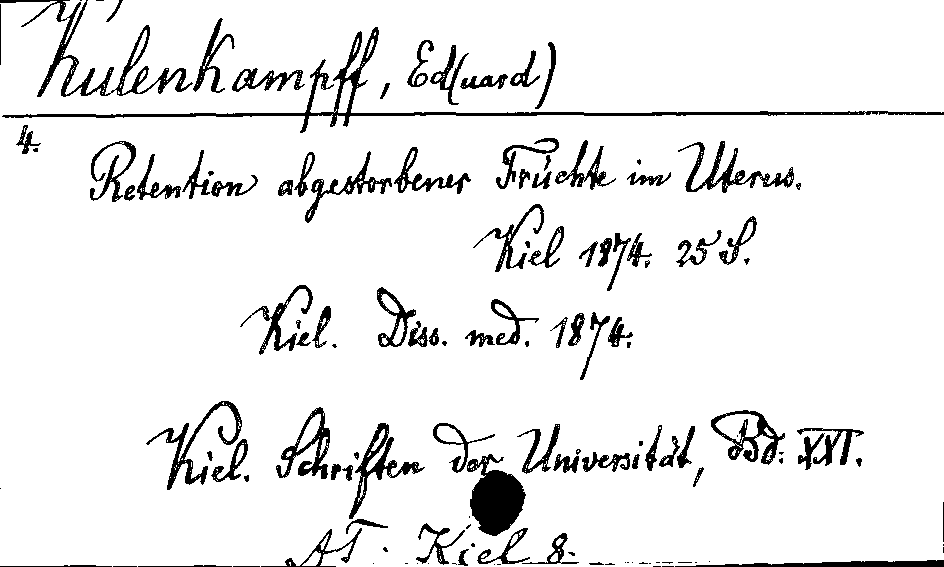 Kulenkampff, Ed(uard)
4.
Retention abgestorbener Früchte im Uterus.
Kiel 1874. 25 S.
Kiel. Diss. med. 1874.
Kiel. Schriften der Universität, Bd. XXI.
AT. Kiel 8.